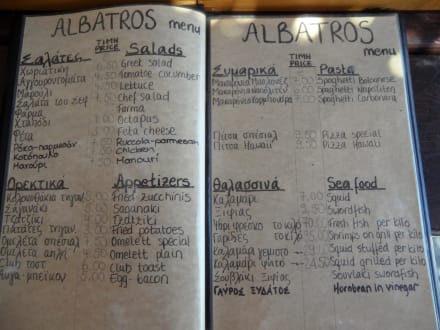 ALBATROS menu
ΤΙΜΗ
PRICE
Σαλάτες Salads
Χωριάτικη 6.50 Greet salad
Αγγουροντομάτα 4.50 Tomatoe corumber
Μαρούλι 4.50 Lettuce
Σαλάτα του Σεφ 7.50 Chef salad
Φάρμα Farma
Χταπόδι Octapus
Φέτα Feta cheese
Ρόκα-παρμεζάν Ruccola-parmesan
Κοτόπουλο Chicken
Μανούρι Manouri
Ορεκτικά Appetizers
Κολοκυθάκια τηγαν. 5.00 Fried zucchinis
Σαγανάκι Saganaki
Τζατζίκι 4.00 Tzatziki
Πατάτες τηγαν. 3.00 Fried potatoes
Ομελέτα σπέσιαλ 7.50 Omelett special
Ομελέτα απλή Omelett plain
Club τοστ 6.00 Club toast
Αυγά μπέικον 5.00 Egg-bacon
ALBATROS
menu
ΤΙΜΗ
PRICE
Ζυμαρικά Paste
Μακαρόνια Spaghetti Bolonese
Μακαρόνια Spaghetti Napoliten
Μακαρόνια Καρμπονάρα Spaghetti Carbonara
Πίτσα σπέσιαλ 9.50 Pizza special
Πίτσα Hawaii Pizza Hawaii
Θαλασσινά Sea food
Καλαμάρι 7.00 Squid
Ξιφίας Swordfish
Ψάρι φρέσκο το κιλό Fresh fish per kilo
Γαρίδες το κιλό Shrimps on gril per kilo
Καλαμάρι γεμιστό Squid stuffed per kilo
Καλαμάρι ψητό Squid grilled per kilo
Σουβλάκι Ξιφίας Souvlaki swordfish
ΓΑΥΡΟΣ ΞΥΔΑΤΟΣ Hornbean in vinegar